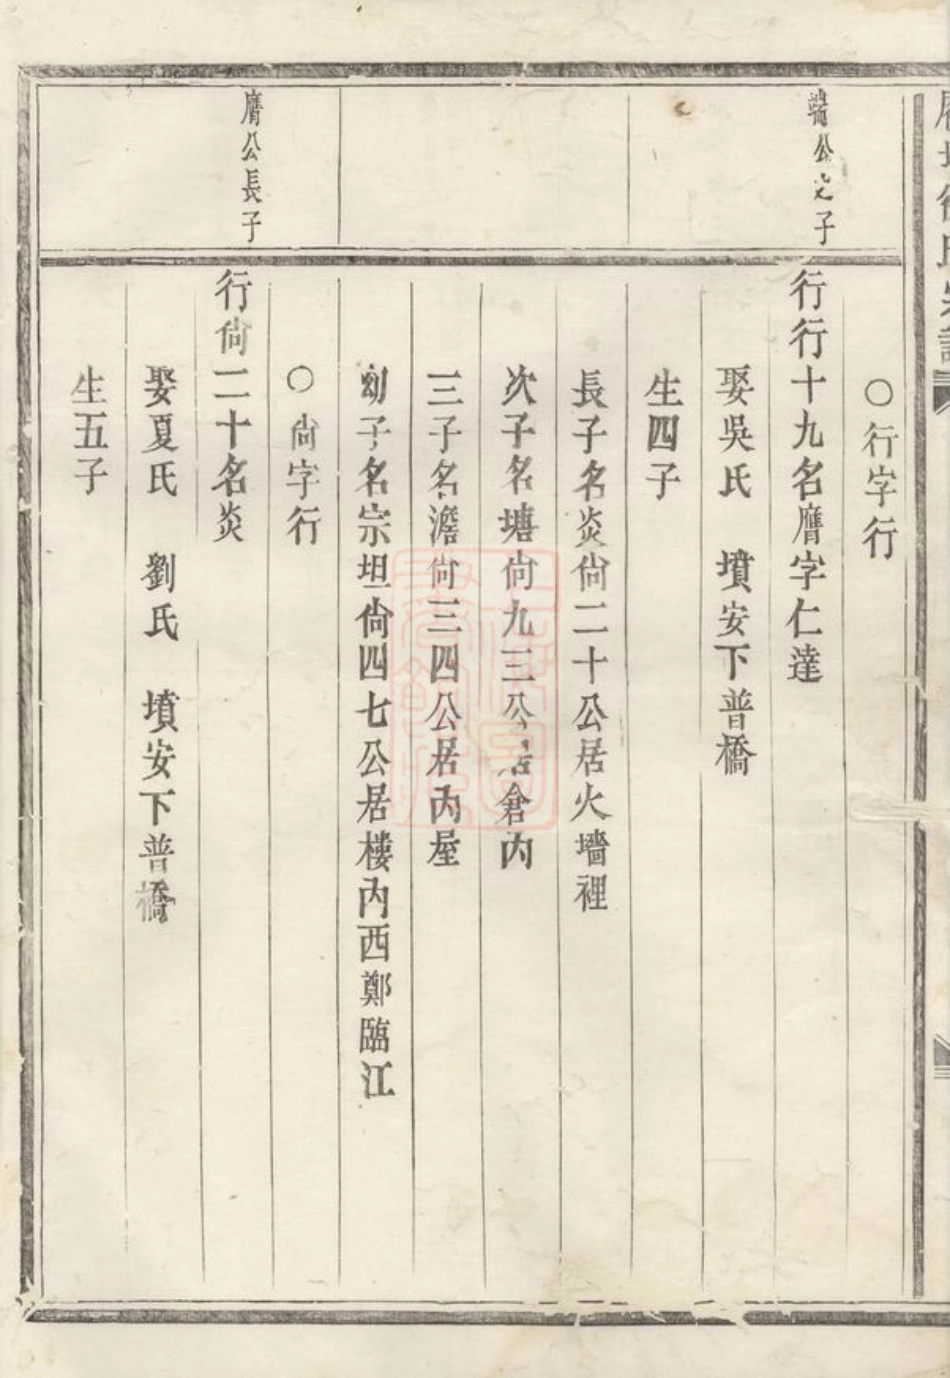 ○行字行
端公之子
行行十九名膺字仁達
娶吳氏 墳安下普橋
生四子
長子名炎尙二十公居火墻裡
次子名塘尙九三公居倉內
三子名澹尙三四公居內屋
幼子名宗坦尙四七公居樓內西鄭臨江
○尙字行
膺公長子
行尙二十名炎
娶夏氏 劉氏 墳安下普橋
生五子